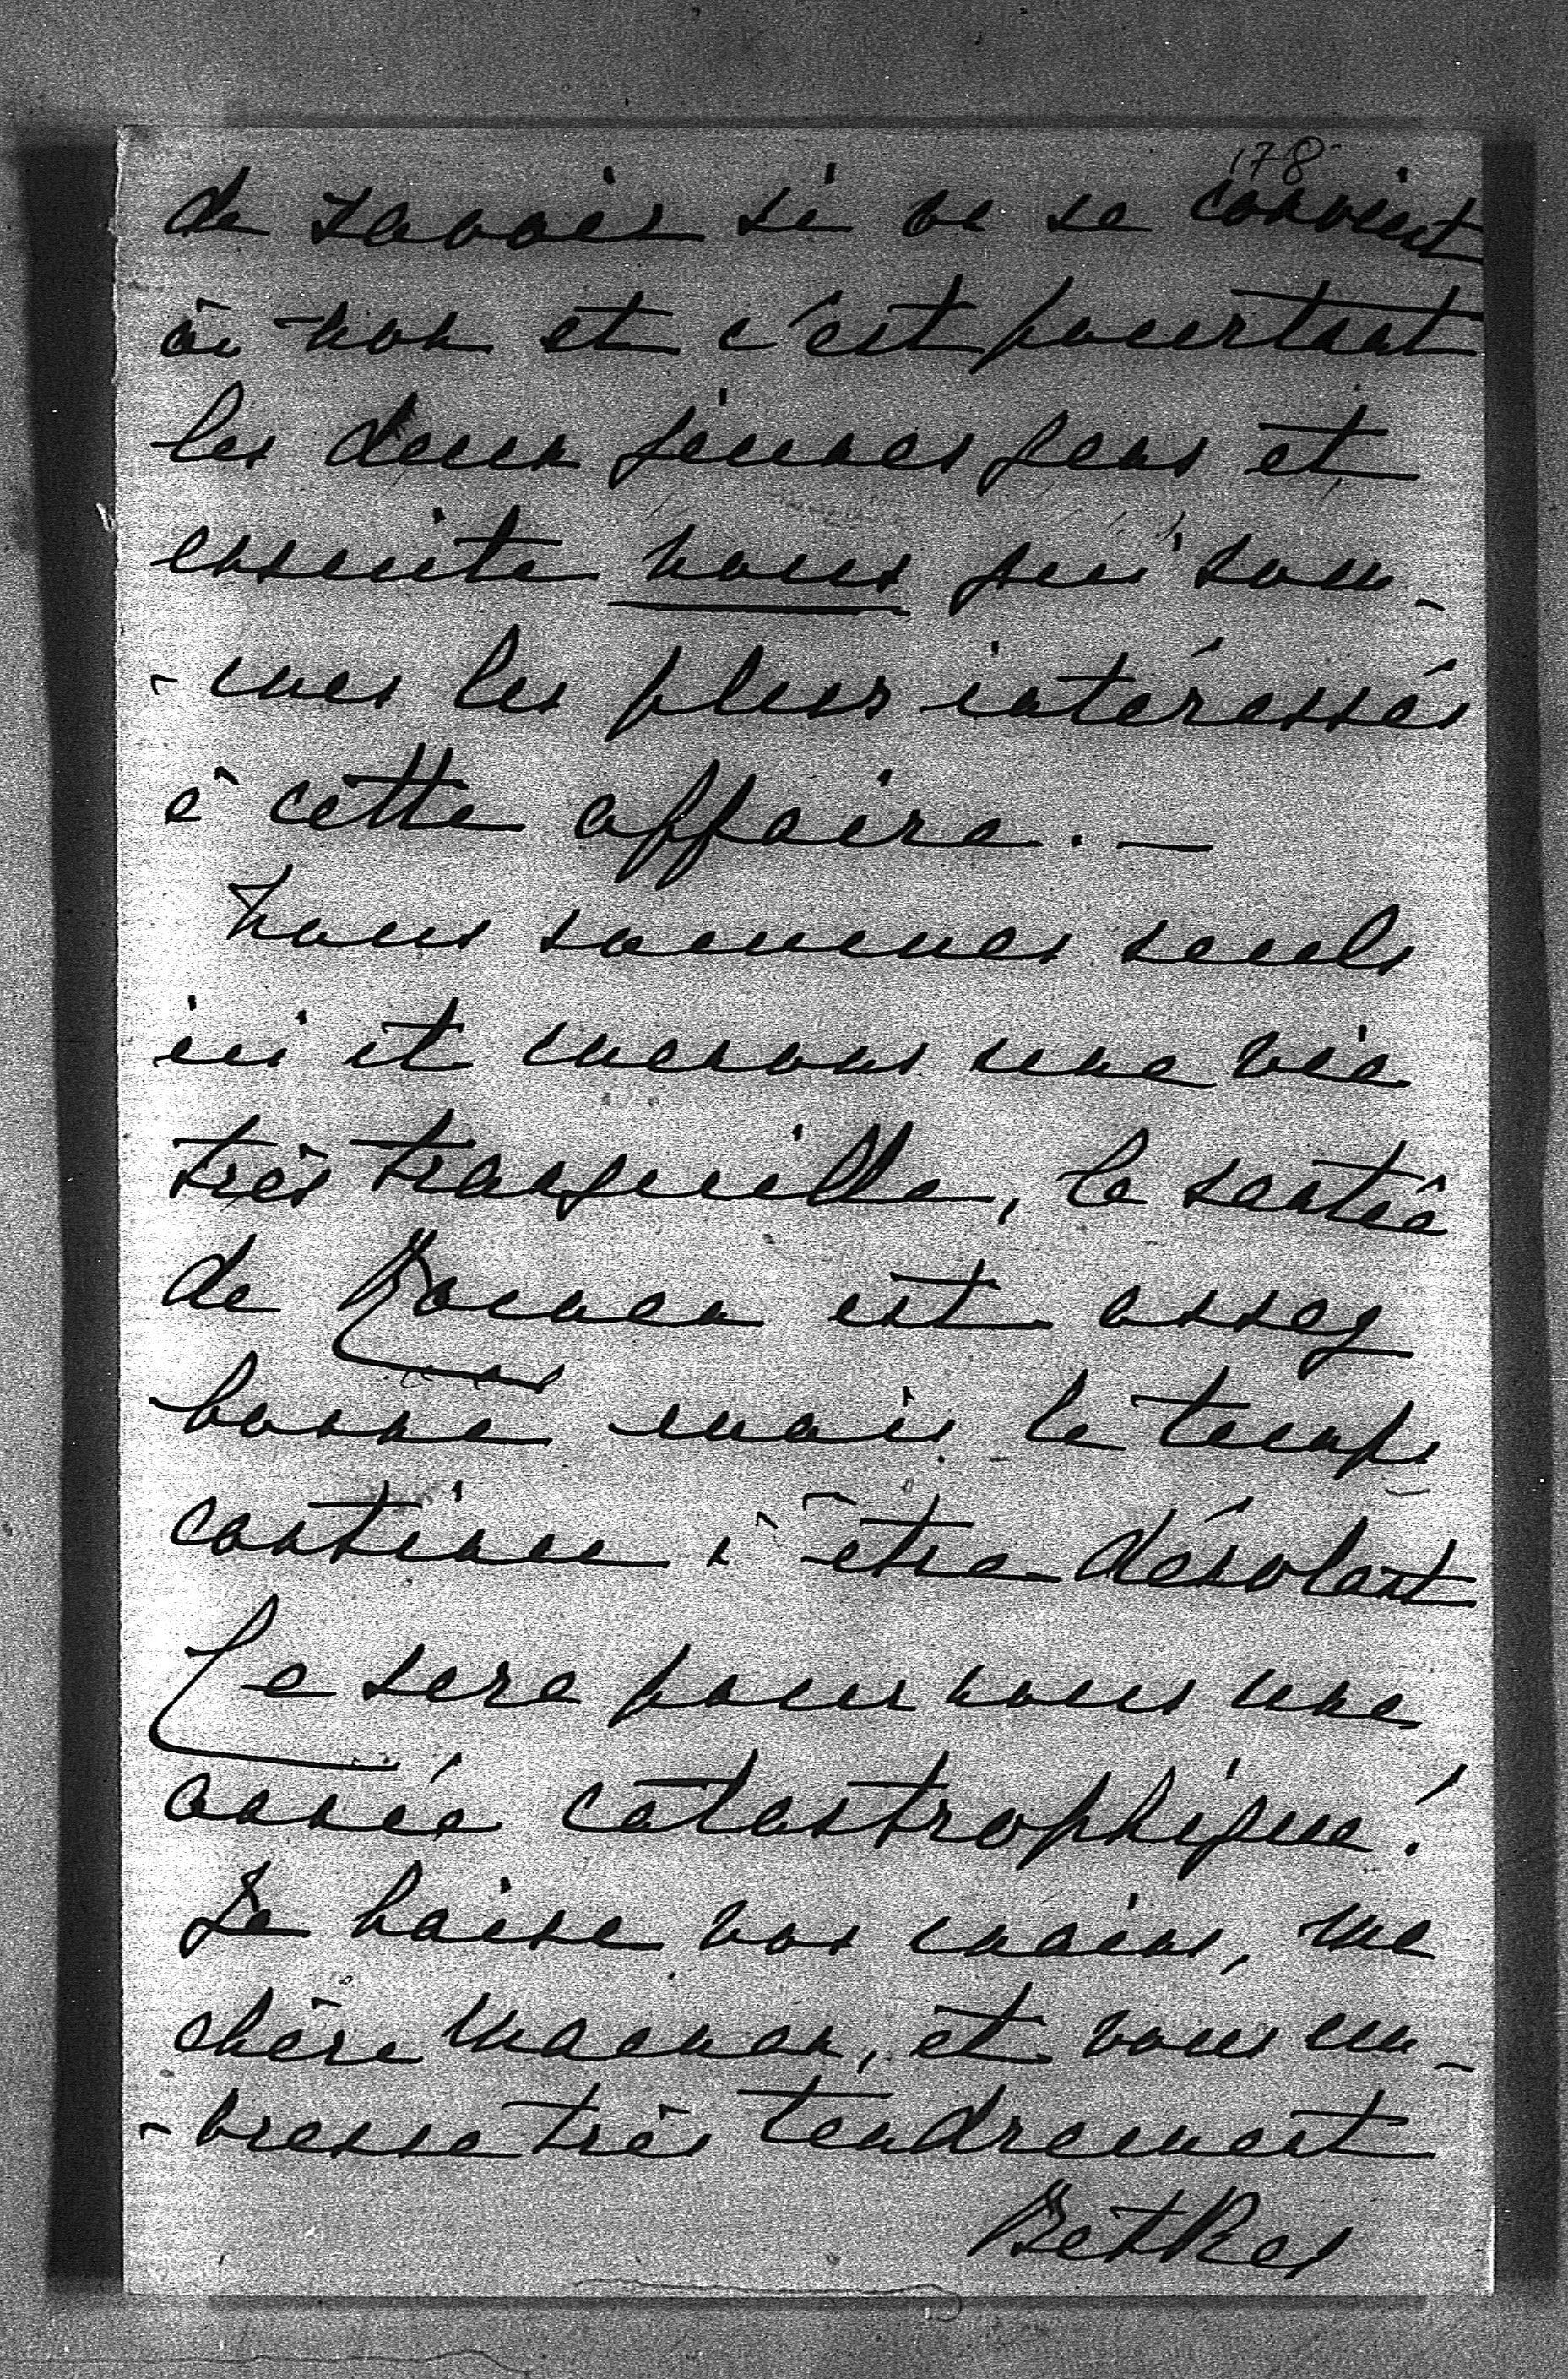 178
de savoir si on se convient
ou non et c'est pourtant
les deux jeunes gens et
ensuite nous qui som-
-mes les plus intéressés
à cette affaire. —
Nous sommes seuls
ici et menons une vie
très tranquille, la santée
de est assez
bonne mais le temps
continue à être désolant
Ce sera pour nous une
année catastrophique!
Je baise vos mains, ma
chère Maman, et vous em-
-brasse très tendrement